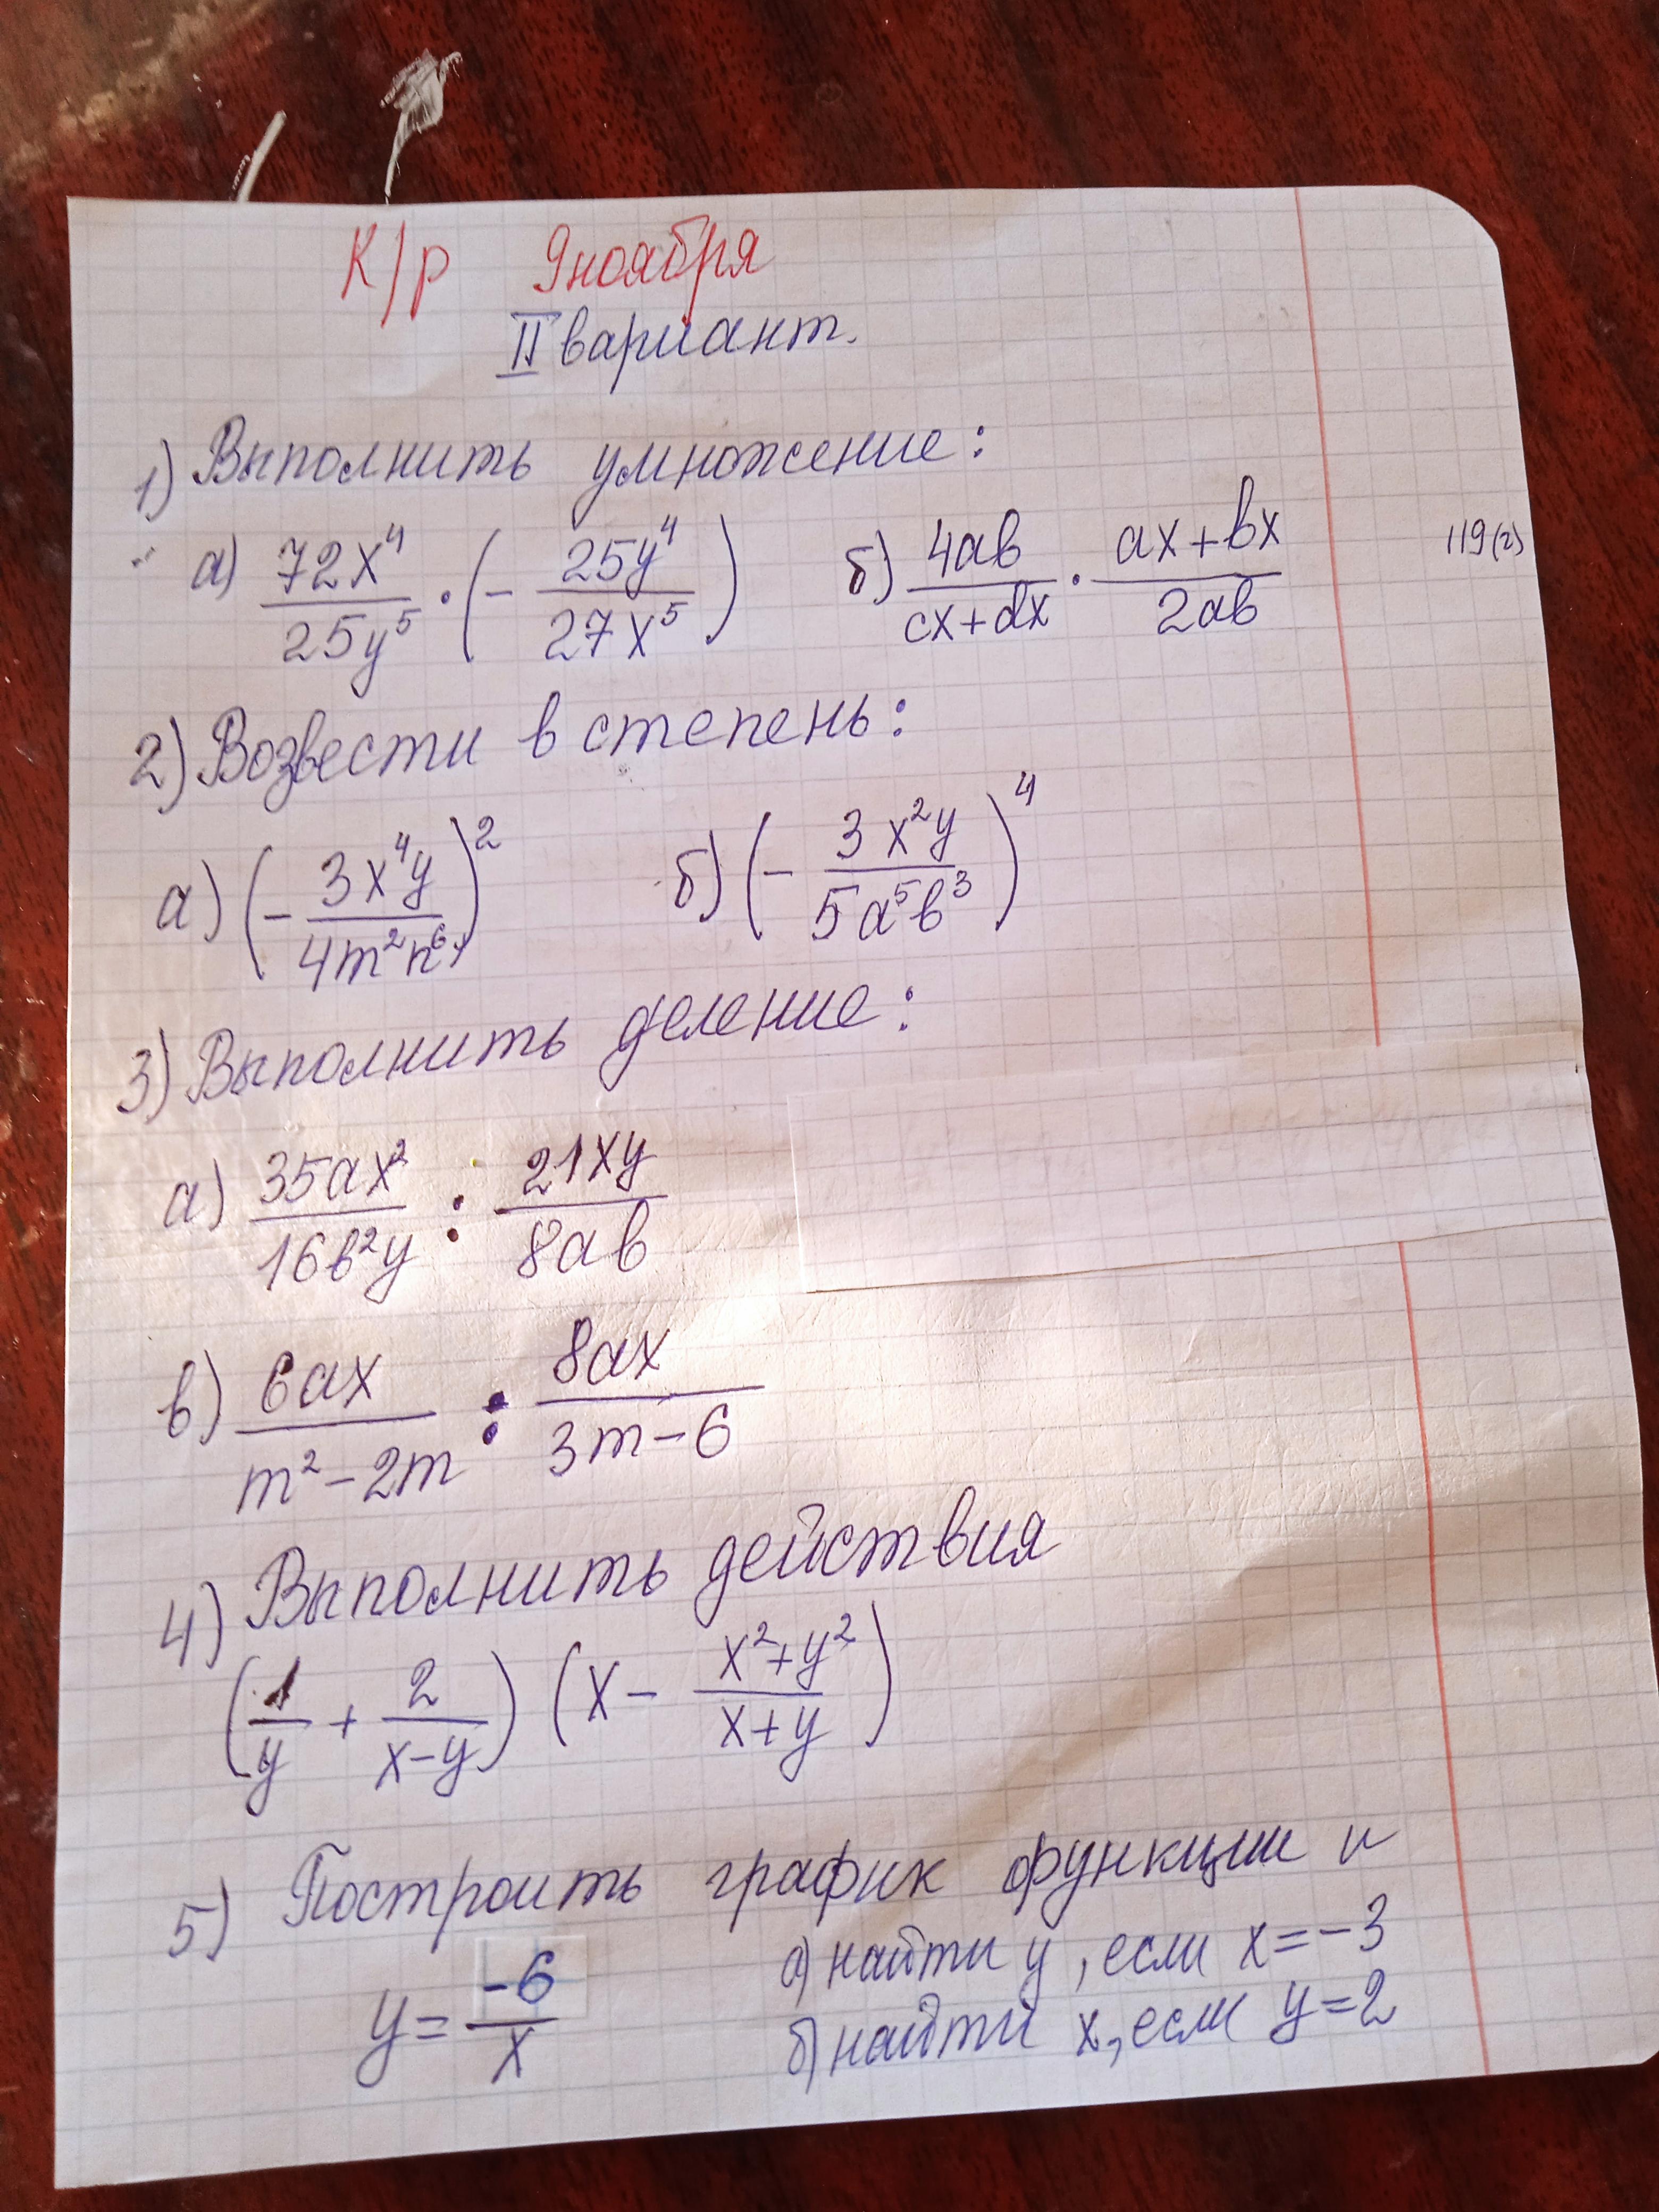 К/р 9 ноября
II вариант.
1) Выполнить умножение:
а) 72x⁴/25y⁵ · (- 25y⁴/27x⁵) б) 4ab/cx+dx · ax+bx/2ab 119(2)
2) Возвести в степень:
а) (- 3x⁴y/4m²n⁶)² б) (- 3x²y/5a⁵b³)⁴
3) Выполнить деление:
а) 35ax²/16b²y : 21xy/8ab
в) 6ax/m²-2m : 8ax/3m-6
4) Выполнить действия
(1/y + 2/x-y) (x - x²+y²/x+y)
5) Построить график функции и
y = -6/x а) найти y, если x=-3
б) найти x, если y=2